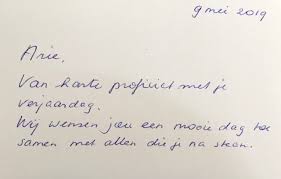 9 mei 2019
Arie,
Van harte proficiat met je
verjaardag.
Wij wensen jou een mooie dag toe
samen met allen die je na staan.